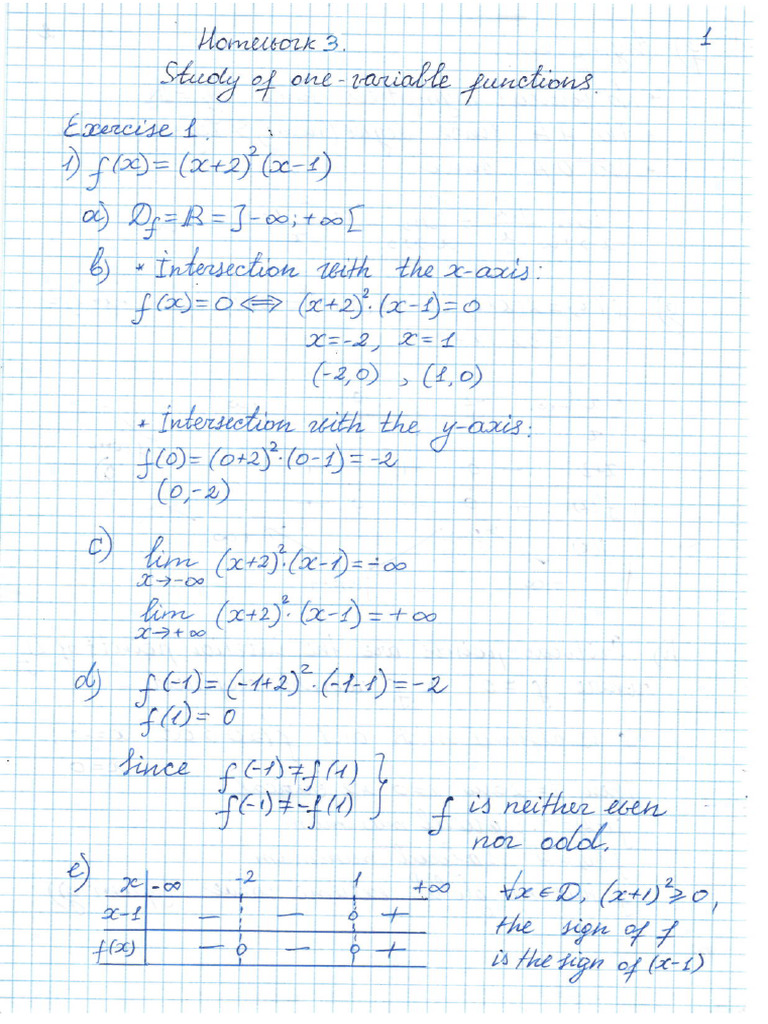 Homework 3.
1
Study of one-variable functions.
Exercise 1.
1) f(x)=(x+2)²(x-1)
a) D_f=ℝ=]-∞;+∞[
b) * Intersection with the x-axis:
f(x)=0 ⟺ (x+2)²·(x-1)=0
x=-2, x=1
(-2,0) , (1,0)
* Intersection with the y-axis:
f(0)=(0+2)²·(0-1)=-2
(0,-2)
c) lim x→-∞ (x+2)²·(x-1)=-∞
lim x→+∞ (x+2)²·(x-1)=+∞
d) f(-1)=(-1+2)²·(-1-1)=-2
f(1)=0
Since f(-1)≠f(1) }
f(-1)≠-f(1) } f is neither even
nor odd.
e) x -∞ -2 1 +∞
x-1 — — 0 +
f(x) — 0 — 0 +
∀x∈D, (x+1)²≥0,
the sign of f
is the sign of (x-1)